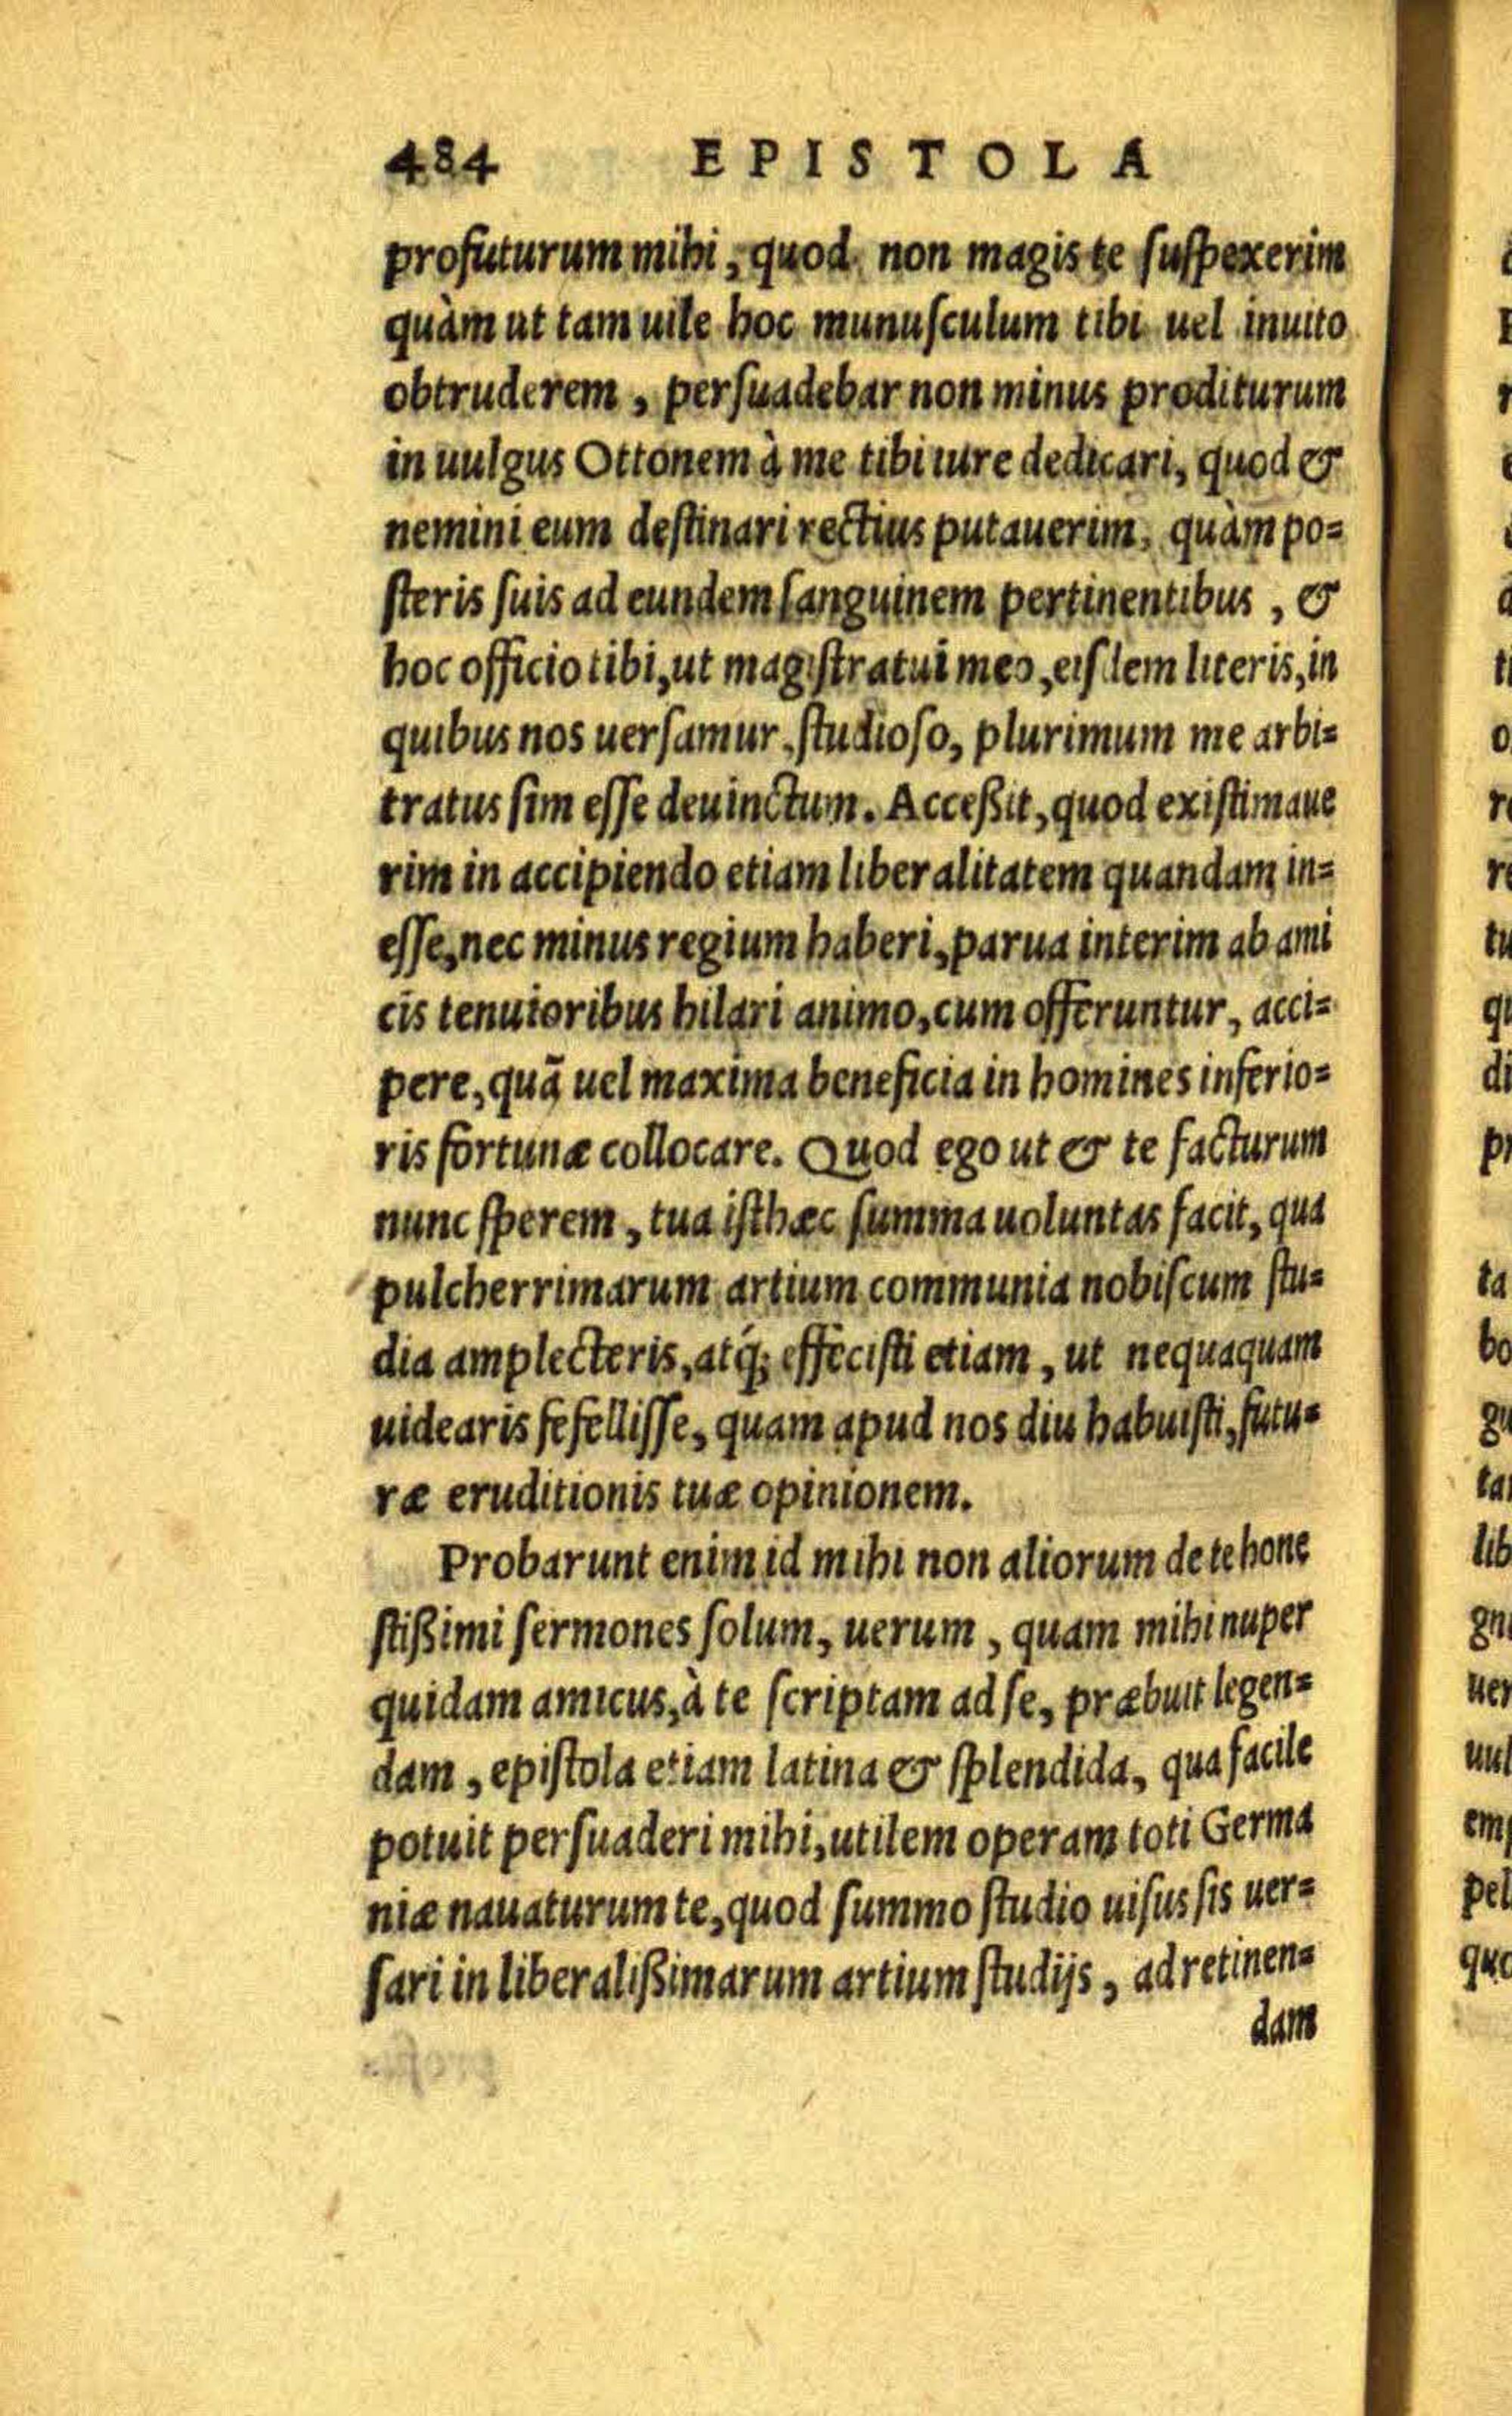 484 EPISTOLA
profuturum mihi, quod non magis te ſuſpexerim
quàm ut tam uile hoc munuſculum tibi uel inuito
obtruderem, perſuadebar non minus proditurum
in uulgus Ottonem à me tibi iure dedicari, quod &
nemini eum deſtinari rectius putauerim, quàm po=
ſteris ſuis ad eundem ſanguinem pertinentibus, &
hoc officio tibi, ut magiſtratui meo, eiſdem literis, in
quibus nos uerſamur, ſtudioſo, plurimum me arbi=
tratus ſim eſſe deuinctum. Acceßit, quod exiſtimaue
rim in accipiendo etiam liberalitatem quandam in=
eſſe, nec minus regium haberi, parua interim ab ami
cis tenuioribus hilari animo, cum offeruntur, acci=
pere, quã uel maxima beneficia in homines inferio=
ris fortunæ collocare. Quod ego ut & te facturum
nunc ſperem, tua iſthæc ſumma uoluntas facit, qua
pulcherrimarum artium communia nobiſcum ſtu=
dia amplecteris, atq́; effeciſti etiam, ut nequaquam
uidearis fefelliſſe, quam apud nos diu habuiſti, futu=
ræ eruditionis tuæ opinionem.
Probarunt enim id mihi non aliorum de te hone
ſtißimi ſermones ſolum, uerum, quam mihi nuper
quidam amicus, à te ſcriptam ad ſe, præbuit legen=
dam, epiſtola etiam latina & ſplendida, qua facile
potuit perſuaderi mihi, utilem operam toti Germa
niæ nauaturum te, quod ſummo ſtudio uiſus ſis uer=
ſari in liberalißimarum artium ſtudijs, ad retinen=
dam